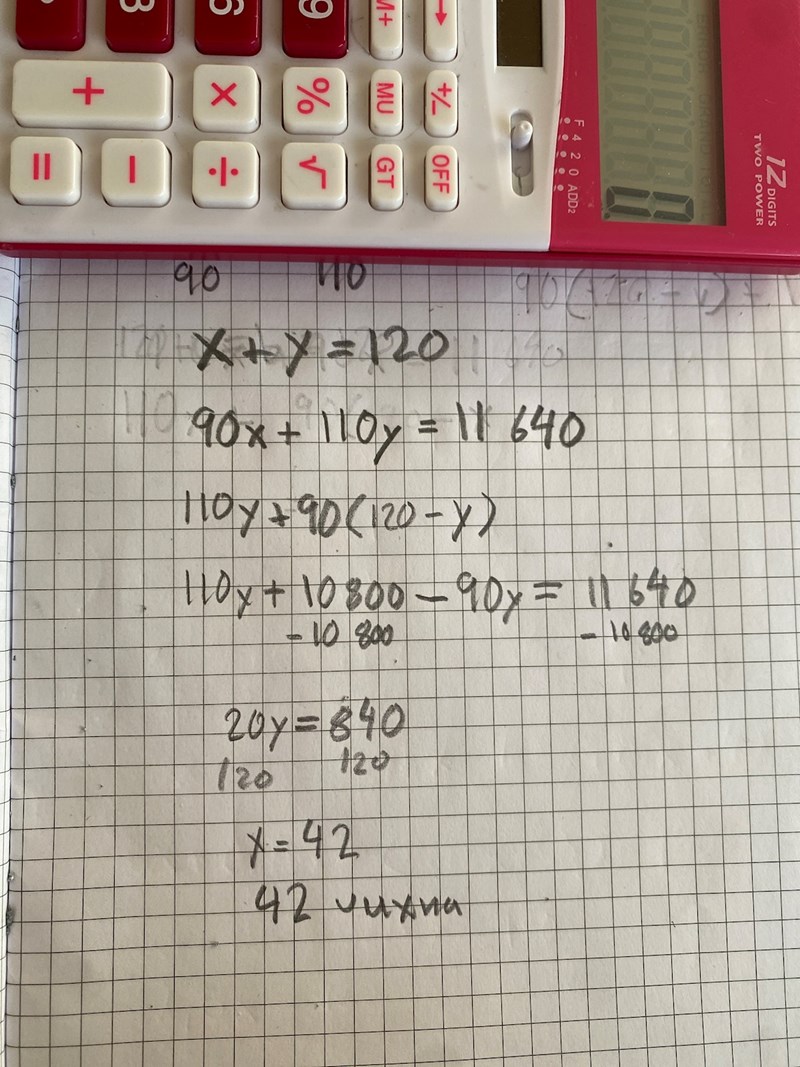 3 6 9 M+ →
+ × % MU +/-
= - ÷ √ GT OFF
F 4 2 0 ADD2
12 DIGITS
TWO POWER
0.
90 110
x + y = 120
90x + 110y = 11 640
110y + 90(120 - y)
110y + 10 800 - 90y = 11 640
- 10 800 - 10 800
20y = 840
/20 /20
y = 42
42